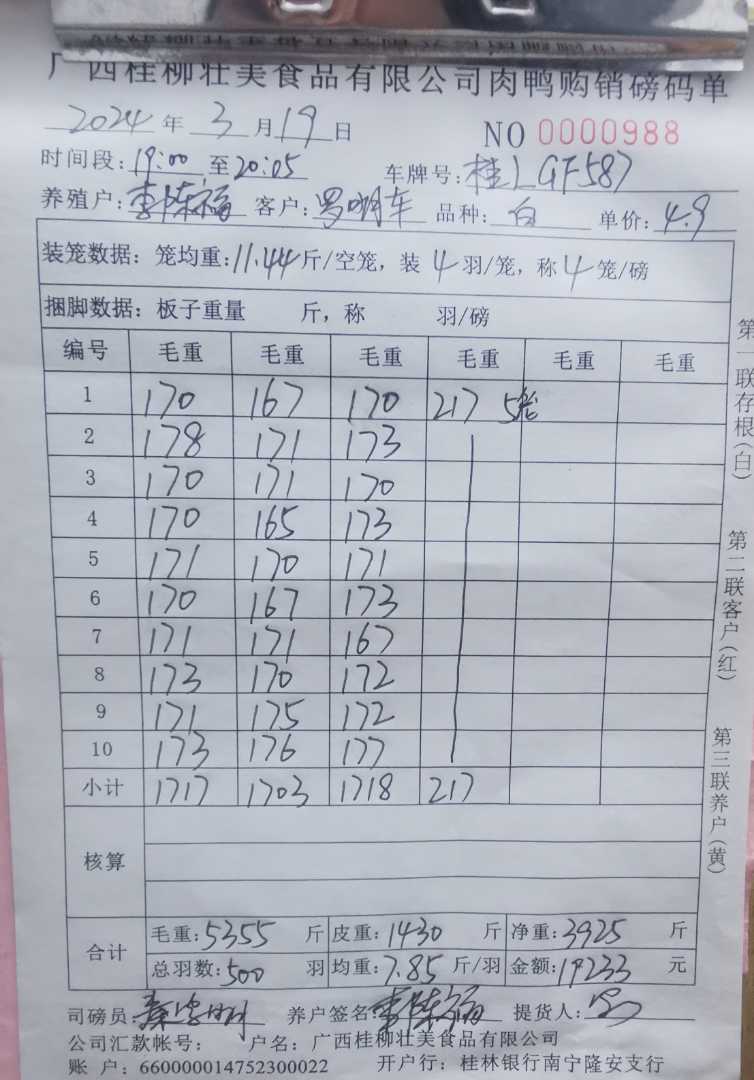 广西桂柳壮美食品有限公司肉鸭购销磅码单
2024 年 3 月 19 日 NO 0000988
时间段: 19:00 至 20:05 车牌号: 桂LGF587
养殖户: 李陈福 客户: 罗明车 品种: 白 单价: 4.9
装笼数据: 笼均重: 11.44 斤/空笼, 装 4 羽/笼, 称 4 笼/磅
捆脚数据: 板子重量 斤, 称 羽/磅
编号 毛重 毛重 毛重 毛重 毛重 毛重
1 170 167 170 217 5笼
2 178 171 173
3 170 171 170
4 170 165 173
5 171 170 171
6 170 167 173
7 171 171 167
8 173 170 172
9 171 175 172
10 173 176 177
小计 1717 1703 1718 217
核算
合计
毛重: 5355 斤 皮重: 1430 斤 净重: 3925 斤
总羽数: 500 羽 均重: 7.85 斤/羽 金额: 19233 元
司磅员: 养户签名: 李陈福 提货人:
公司汇款帐号: 户名: 广西桂柳壮美食品有限公司
账 户: 660000014752300022 开户行: 桂林银行南宁隆安支行
第一联存根(白)
第二联客户(红)
第三联养户(黄)